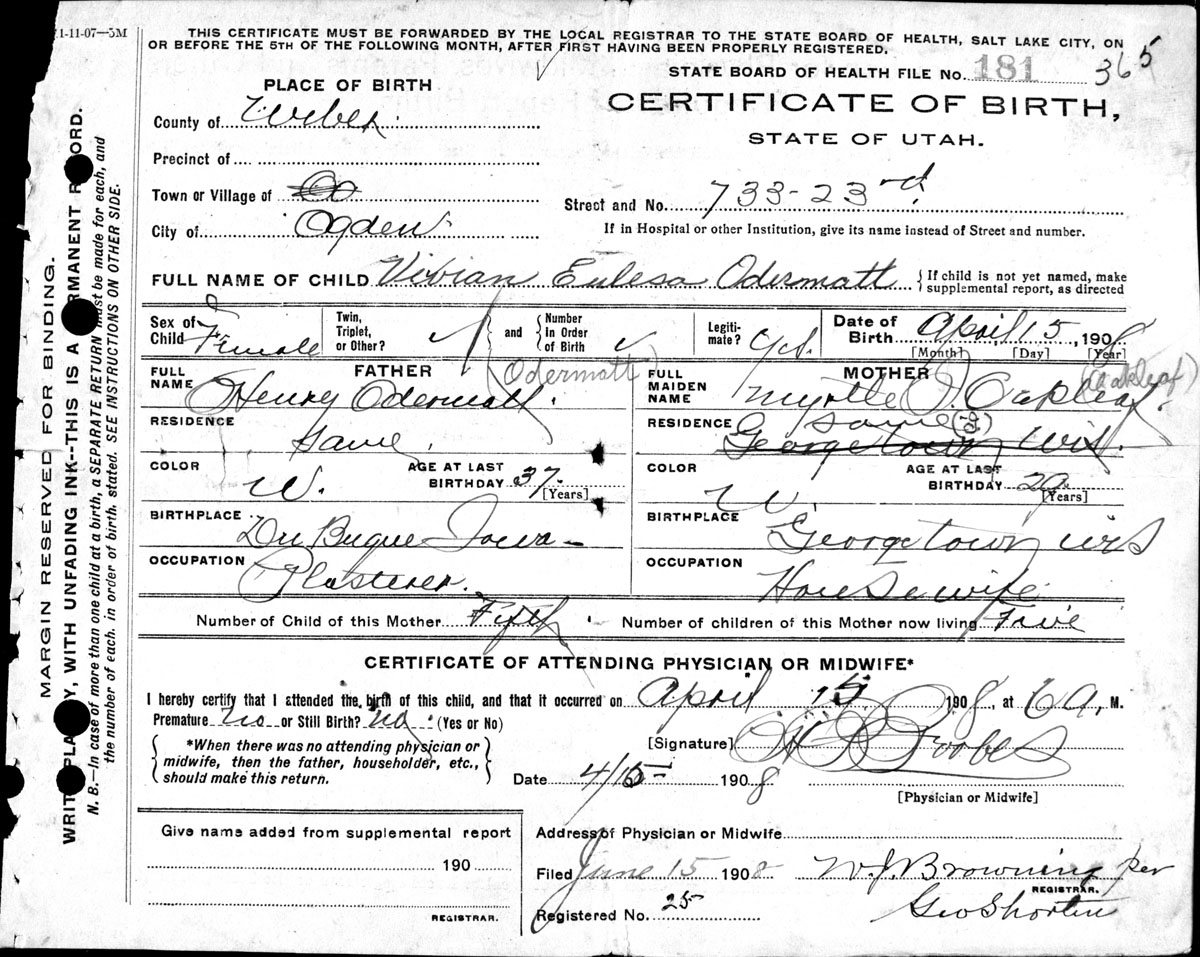 1-11-07—5M
THIS CERTIFICATE MUST BE FORWARDED BY THE LOCAL REGISTRAR TO THE STATE BOARD OF HEALTH, SALT LAKE CITY, ON
OR BEFORE THE 5TH OF THE FOLLOWING MONTH, AFTER FIRST HAVING BEEN PROPERLY REGISTERED.
STATE BOARD OF HEALTH FILE No. 181 365
PLACE OF BIRTH
CERTIFICATE OF BIRTH,
STATE OF UTAH.
County of Weber
Precinct of
Town or Village of
Street and No. 733-23rd
City of Ogden
If in Hospital or other Institution, give its name instead of Street and number.
FULL NAME OF CHILD Vivian Eulesa Odermatt {If child is not yet named, make supplemental report, as directed
Sex of Child Female Twin, Triplet, or Other? and Number in Order of Birth Legitimate? Yes. Date of Birth April, 15, 1908
[Month] [Day] [Year]
FATHER (Odermatt)
FULL NAME Henry Odermatt.
RESIDENCE Same.
COLOR W. AGE AT LAST BIRTHDAY 37 [Years]
BIRTHPLACE Du Buque Iowa
OCCUPATION Plasterer.
MOTHER (Oakleaf)
FULL MAIDEN NAME Myrtle J. Oakleaf.
RESIDENCE same
Georgetown Wis.
COLOR W. AGE AT LAST BIRTHDAY 29 [Years]
BIRTHPLACE Georgetown Wis
OCCUPATION Housewife
Number of Child of this Mother Fifth. Number of children of this Mother now living Five
CERTIFICATE OF ATTENDING PHYSICIAN OR MIDWIFE*
I hereby certify that I attended the birth of this child, and that it occurred on April 15 1908, at 6 A. M.
Premature no or Still Birth? no. (Yes or No)
*When there was no attending physician or midwife, then the father, householder, etc., should make this return.
[Signature]
Date 4/15 1908
[Physician or Midwife]
Give name added from supplemental report
190
REGISTRAR.
Address of Physician or Midwife
Filed June 15 1908 W. J. Browning per
REGISTRAR.
Registered No. 25 Geo Shorten
MARGIN RESERVED FOR BINDING.
WRITE PLAINLY, WITH UNFADING INK--THIS IS A PERMANENT RECORD.
N. B.—In case of more than one child at a birth, a SEPARATE RETURN must be made for each, and
the number of each, in order of birth, stated. SEE INSTRUCTIONS ON OTHER SIDE.